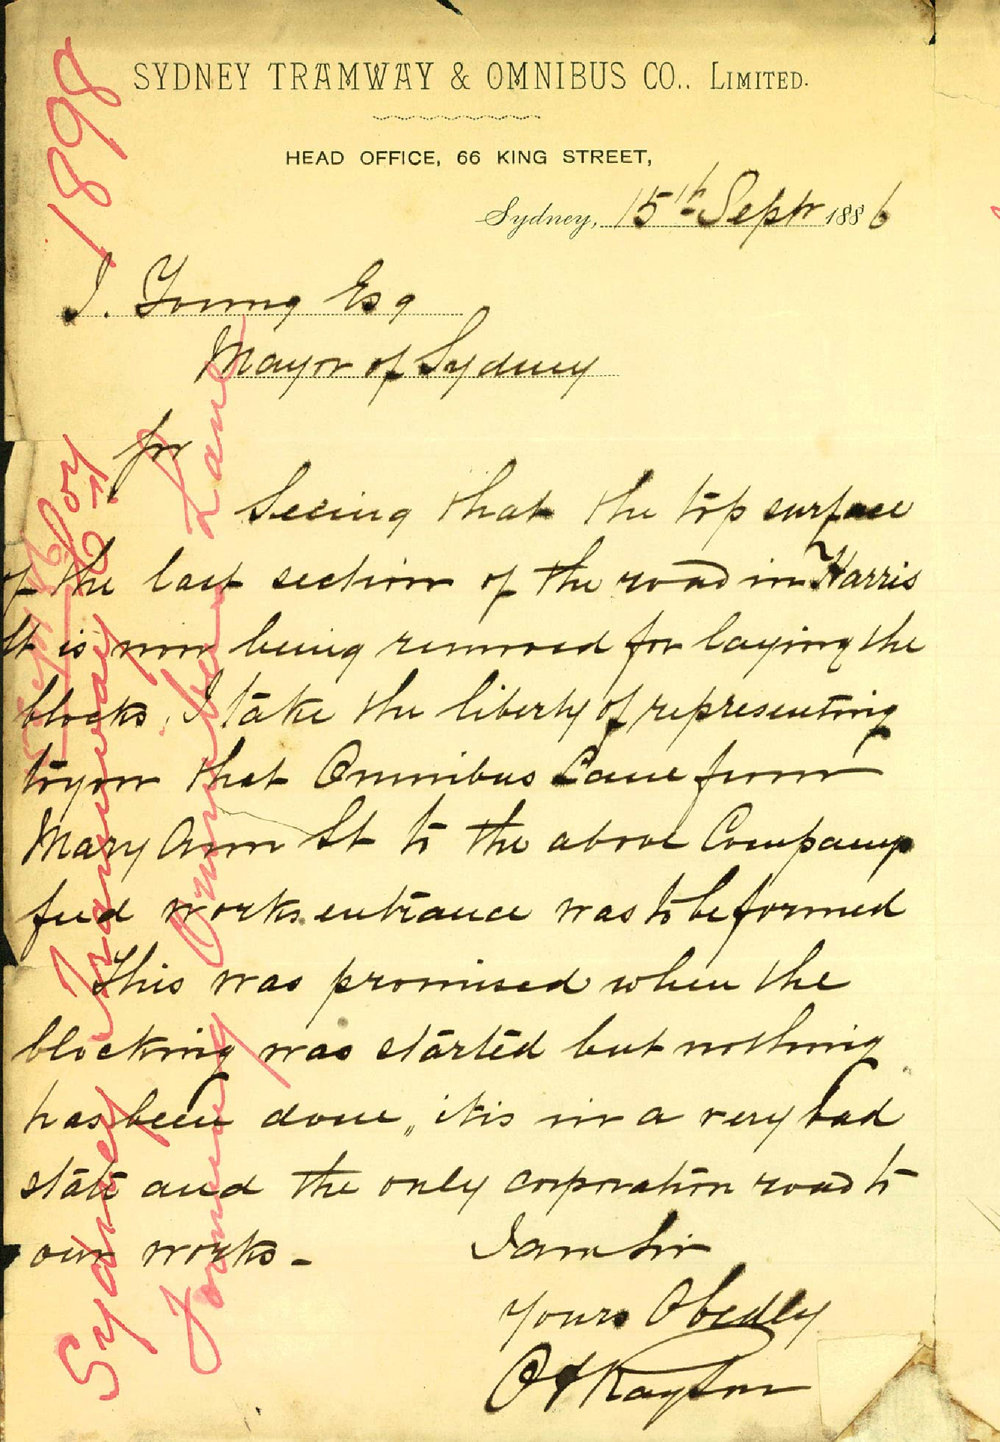 SYDNEY TRAMWAY & OMNIBUS CO., LIMITED.
HEAD OFFICE, 66 KING STREET,
Sydney, 15th Septr 1886
J. Young Esq
Mayor of Sydney
Sir
Seeing that the top surface
of the last section of the road in Harris
St is now being removed for laying the
blocks, I take the liberty of representing
to you that Omnibus Lane from
Mary Ann St to the above Companys
feed works entrance was to be formed
This was promised when the
blocking was started but nothing
has been done, it is in a very bad
state and the only corporation road to
our works -
I am Sir
Yours Obedly
1898
Sydney Tramway & Omy Coy
Forming Omnibus Lane
15 Sept 86